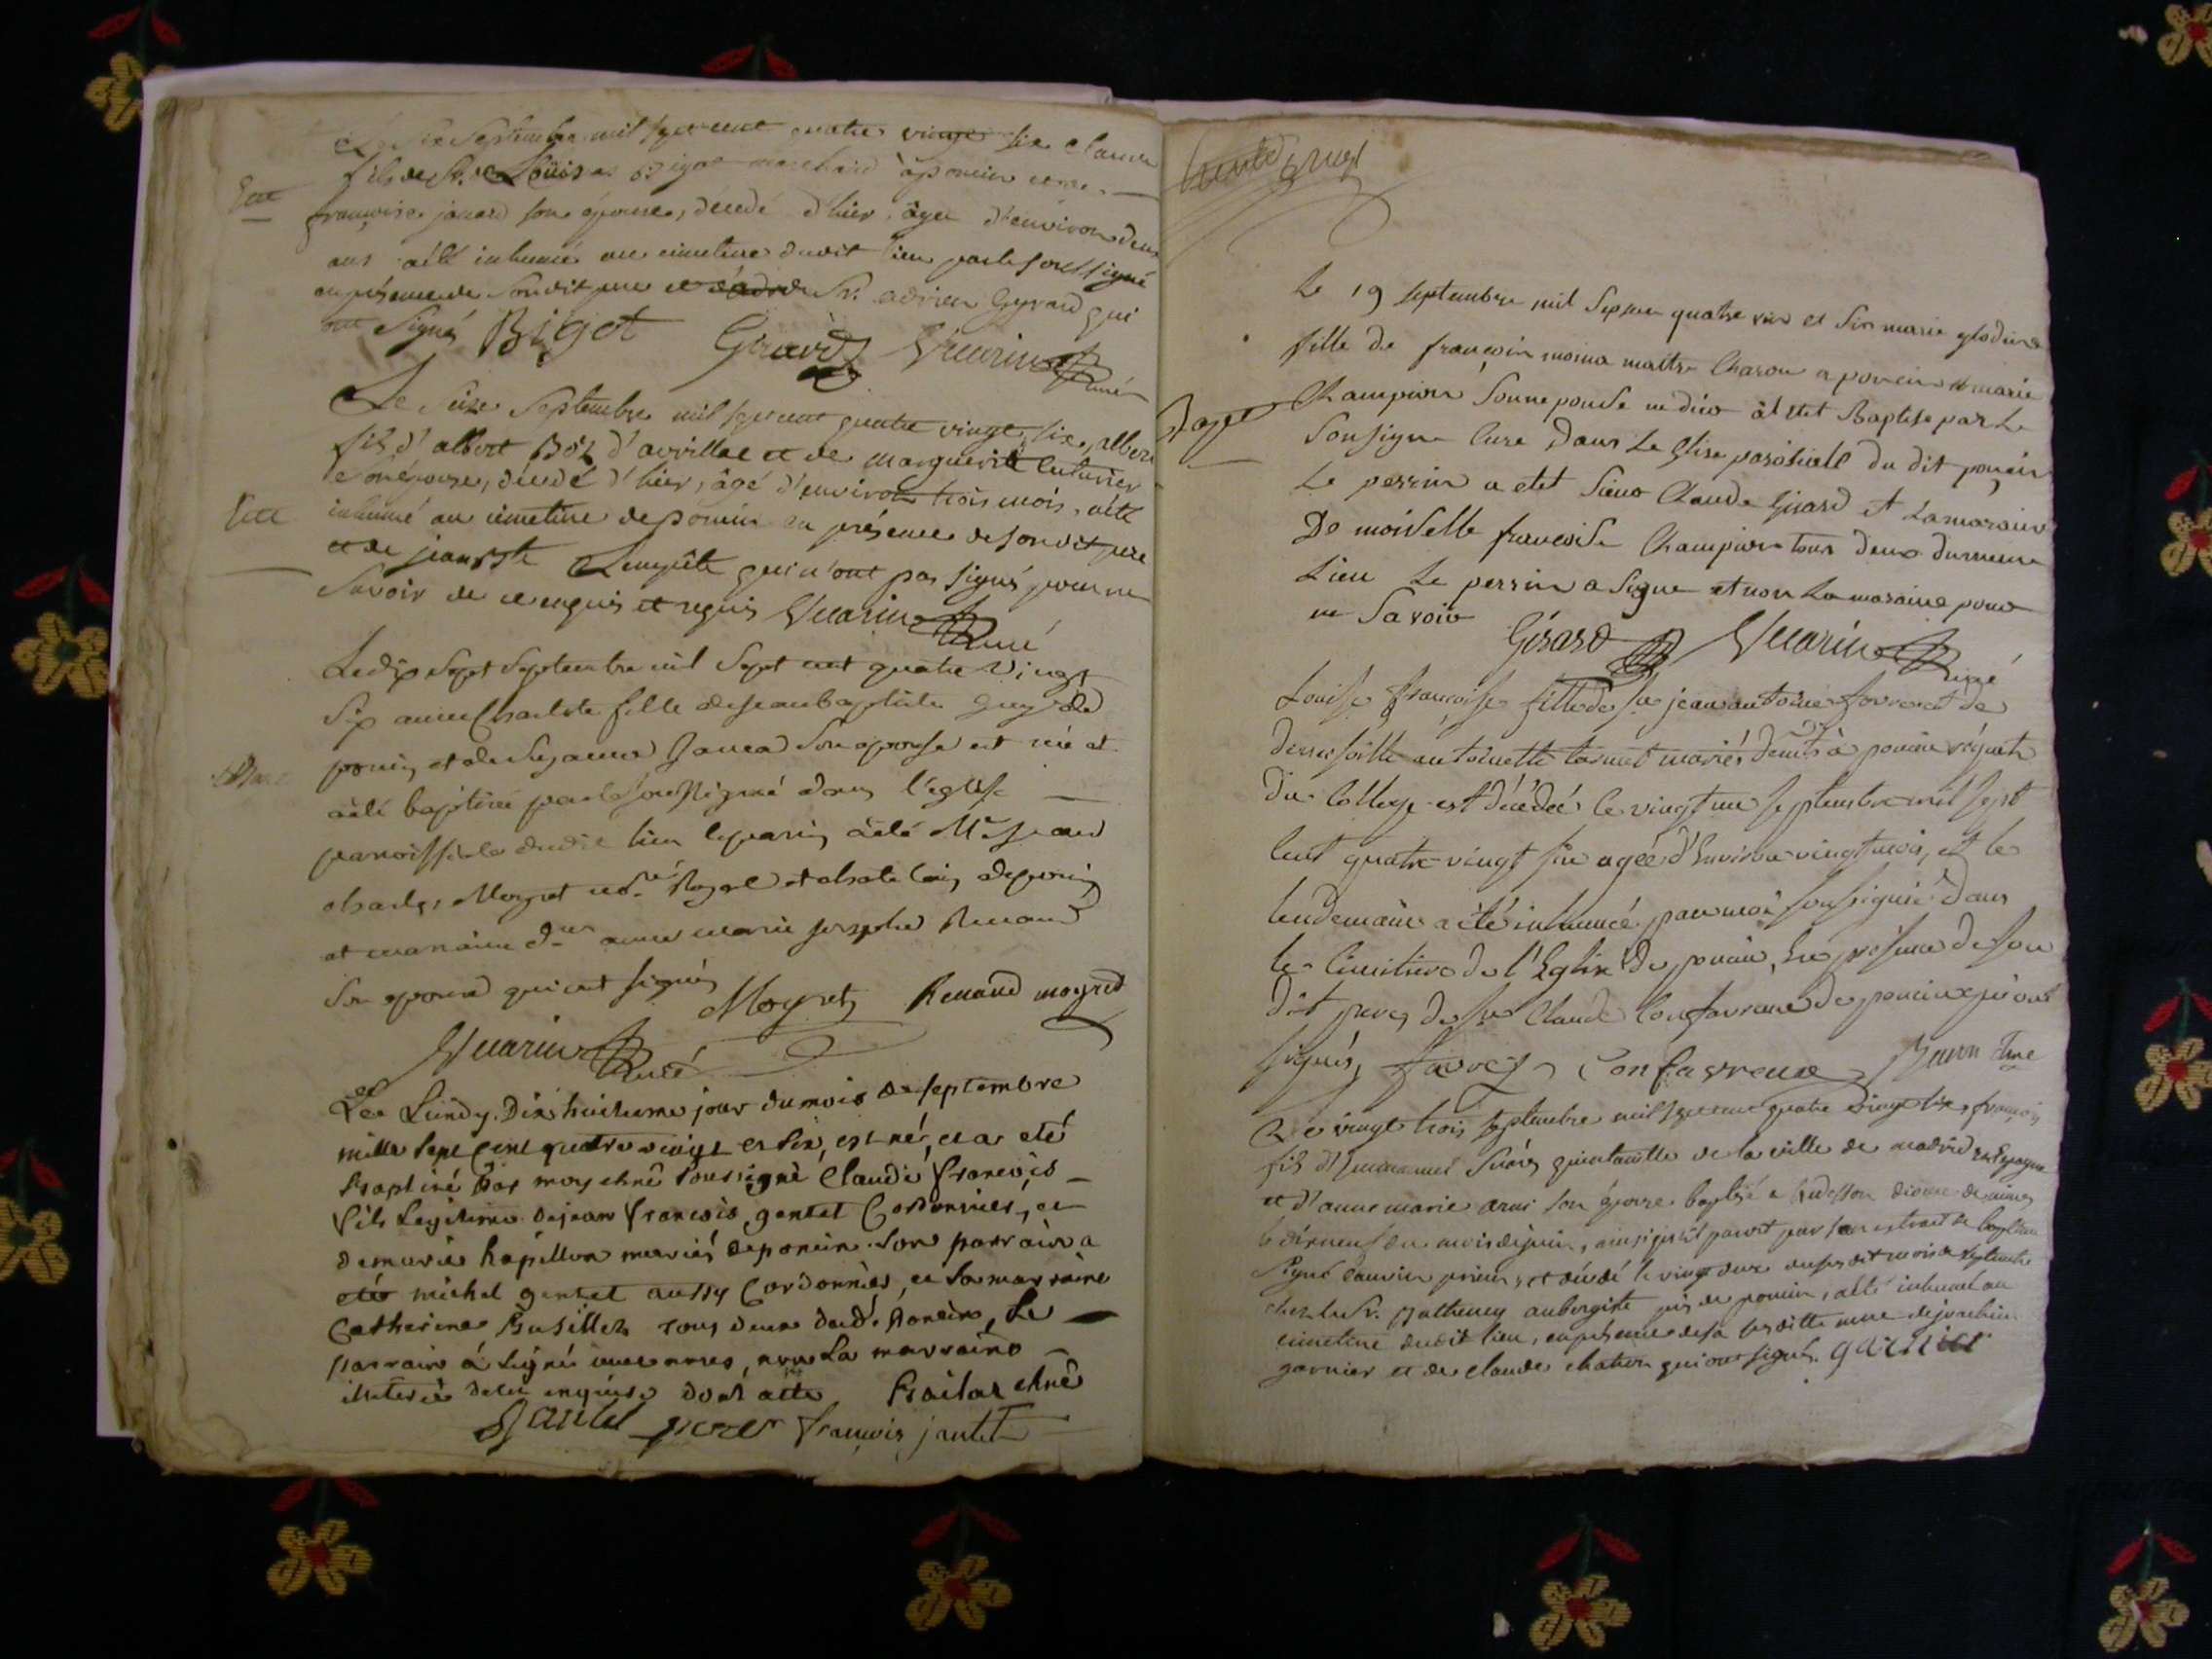 septembre mil sept cent quatre vingt six claude
fils de Sr. Louis Bigot marchand à poncin et de
françoise janard son épouse, décédé d'hier, âgé d'environ deux
ans a été inhumé au cimetiere dudit lieu par le soussigné
en présence de son dit pere et de Sr. adrien Gyrard qui
ont signés Bigot Girard Vuarin curé
Le seize Septembre mil sept cent quatre vingt six, albert
fils d'albert d'arvillac et de marguerite
son épouse, décédé d'hier, âgé d'environ trois mois, a été
inhumé au cimetiere de poncin en présence de son dit pere
et de jean Bte qui n'ont pas signés pour ne
savoir de ce enquis et requis Vuarin curé
Le dix Sept Septembre mil Sept cent quatre vingt
Six anne Charlote fille de jean baptiste guy de
poncin et de Suzanne Janea Son epouse est née et
a été baptisée par le soussigné dans l'église
paroissiale dudit lieu le parrin a été Mre jean
charles Moyret nore Royal et chatelain de poncin
et maraine dlle anne marie josephe Renaud
Son epouse qui ont signés
Moyret Renaud moyret
Vuarin curé
Le Lundy Dix huitieme jour du mois de septembre
mille sept cent quatre vingt et six, est né, et a eté
Baptisé par moy chne soussigné Claude François
fils Legitime de jean François gentet Cordonnier, et
de marie hapillon mariés de poncin. Son parrain a
eté michel gentet aussy Cordonnier, et sa marraine
Catherine Busillet tous deux dud. Poncin, Le
parrain a signé avec nous, non La marraine
illiterée de ce enquise dont acte Bailat chne
Jantet pierer françois jantet
Le 19 septembre mil Sepsan quatre vin et Sis marie glodine
fille de françoin moina mattre Charon a poncin et marie
Champion Sonne pouse ne dico at etet Baptise par Le
Sonsigne Cure Dans Le glise parosiale du dit poncin
Le perrin a etet Sieur Claude Girard et La maraine
De moiselle francoise Champion tous deux dumeme
Lieu Le perrin a Signe et non La maraine pour
ne Savoir
Gérard Vuarin curé
Louise françoise fille de Sr jean antoine favre et de
demoiselle antoinette tarnet mariés demts à poncin régent
du College est décédée le vingt un septembre mil sept
Cent quatre vingt six agée d'Environ vingt mois, et le
lendemain a été inhumée par moi soussigné dans
le Cimitiere de l'Eglise de poncin, En presence de son
dit pere, de Sr Claude Confavreux de poncin qui ont
signés, favre Confavreux
Le vingt trois septembre mil sept cent quatre vingt six, françois
fils d'Emmanuel de la ville de madrid en Espagne
et d'anne marie son épouse baptisé à diocese de
le dixneuf du mois de juin, ainsi qu'il paroit par son extrait de baptême
signé prieur, et décédé le vingt deux du susdit mois de septembre
chez le Sr. Matheney aubergiste près de poncin, a été inhumé au
cimetiere dudit lieu, en présence de sa susditte mere de joachim
garnier et de claude chaton qui ont signés. garnier